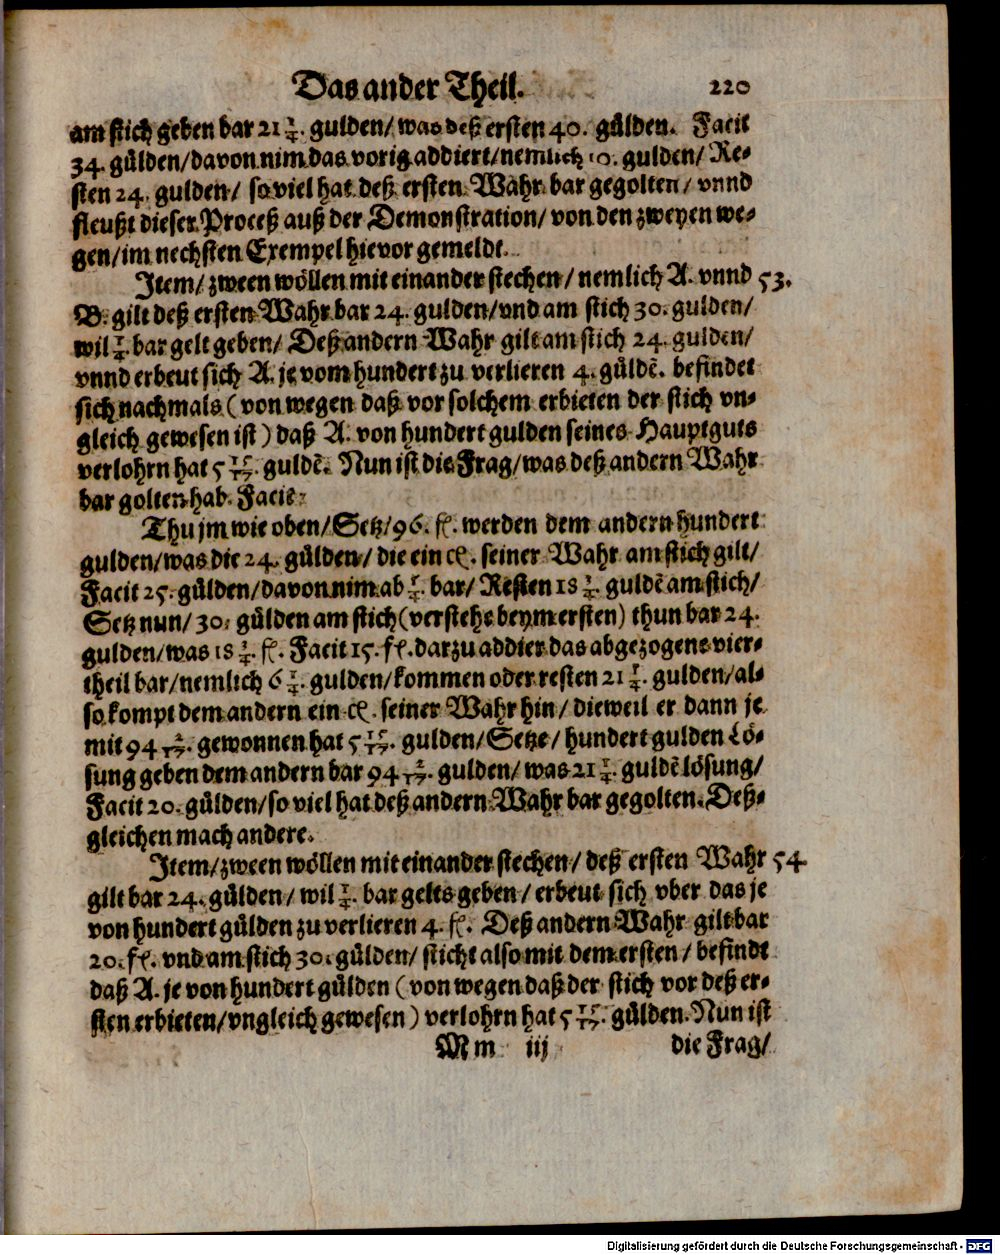 Das ander Theil. 220
am stich geben bar 21 1/4. gulden/ was deß ersten 40. gülden. Facit
34. gülden/ davon nim das vorig addiert/ nemlich 10. gulden/ Re-
sten 24. gulden/ so viel hat deß ersten Wahr bar gegolten/ vnnd
fleußt dieser Proceß auß der Demonstration/ von den zweyen we-
gen/ im nechsten Exempel hievor gemeldt.
Item/ zween wöllen mit einander stechen/ nemlich A. vnnd 53.
B. gilt deß ersten Wahr bar 24. gulden/ vnd am stich 30. gulden/
wil 1/4. bar gelt geben/ Deß andern Wahr gilt am stich 24. gulden/
vnnd erbeut sich A. je vom hundert zu verlieren 4. güldē. befindet
sich nachmals (von wegen daß vor solchem erbieten der stich vn-
gleich gewesen ist) daß A. von hundert gulden seines Hauptguts
verlohrn hat 5 15/17. guldē. Nun ist die Frag/ was deß andern Wahr
bar golten hab. Facit:
Thu jm wie oben/ Setz/ 96. fl. werden dem andern hundert
gulden/ was die 24. gülden/ die ein cl. seiner Wahr am stich gilt/
Facit 25. gülden/ davon nim ab 1/4. bar/ Resten 18 3/4. guldē am stich/
Setz nun/ 30. gülden am stich (verstehe beym ersten) thun bar 24.
gulden/ was 18 3/4. fl. Facit 15. fl. darzu addier das abgezogene vier-
theil bar/ nemlich 6 1/4. gulden/ kommen oder resten 21 1/4. gulden/ al-
so kompt dem andern ein cl. seiner Wahr hin/ dieweil er dann je
mit 94 2/17. gewonnen hat 5 15/17. gulden/ Setze/ hundert gulden Lö-
sung geben dem andern bar 94 2/17. gulden/ was 21 1/4. guldē lösung/
Facit 20. gülden/ so viel hat deß andern Wahr bar gegolten. Deß-
gleichen mach andere.
Item/ zween wöllen mit einander stechen/ deß ersten Wahr 54
gilt bar 24. gülden/ wil 1/4. bar gelts geben/ erbeut sich vber das je
von hundert gülden zu verlieren 4. fl. Deß andern Wahr gilt bar
20. fl. vnd am stich 30. gülden/ sticht also mit dem ersten/ befindt
daß A. je von hundert gülden (von wegen daß der stich vor deß er-
sten erbieten/ vngleich gewesen) verlohrn hat 5 15/17. gülden. Nun ist
Mm iij die Frag/
Digitalisierung gefördert durch die Deutsche Forschungsgemeinschaft - DFG